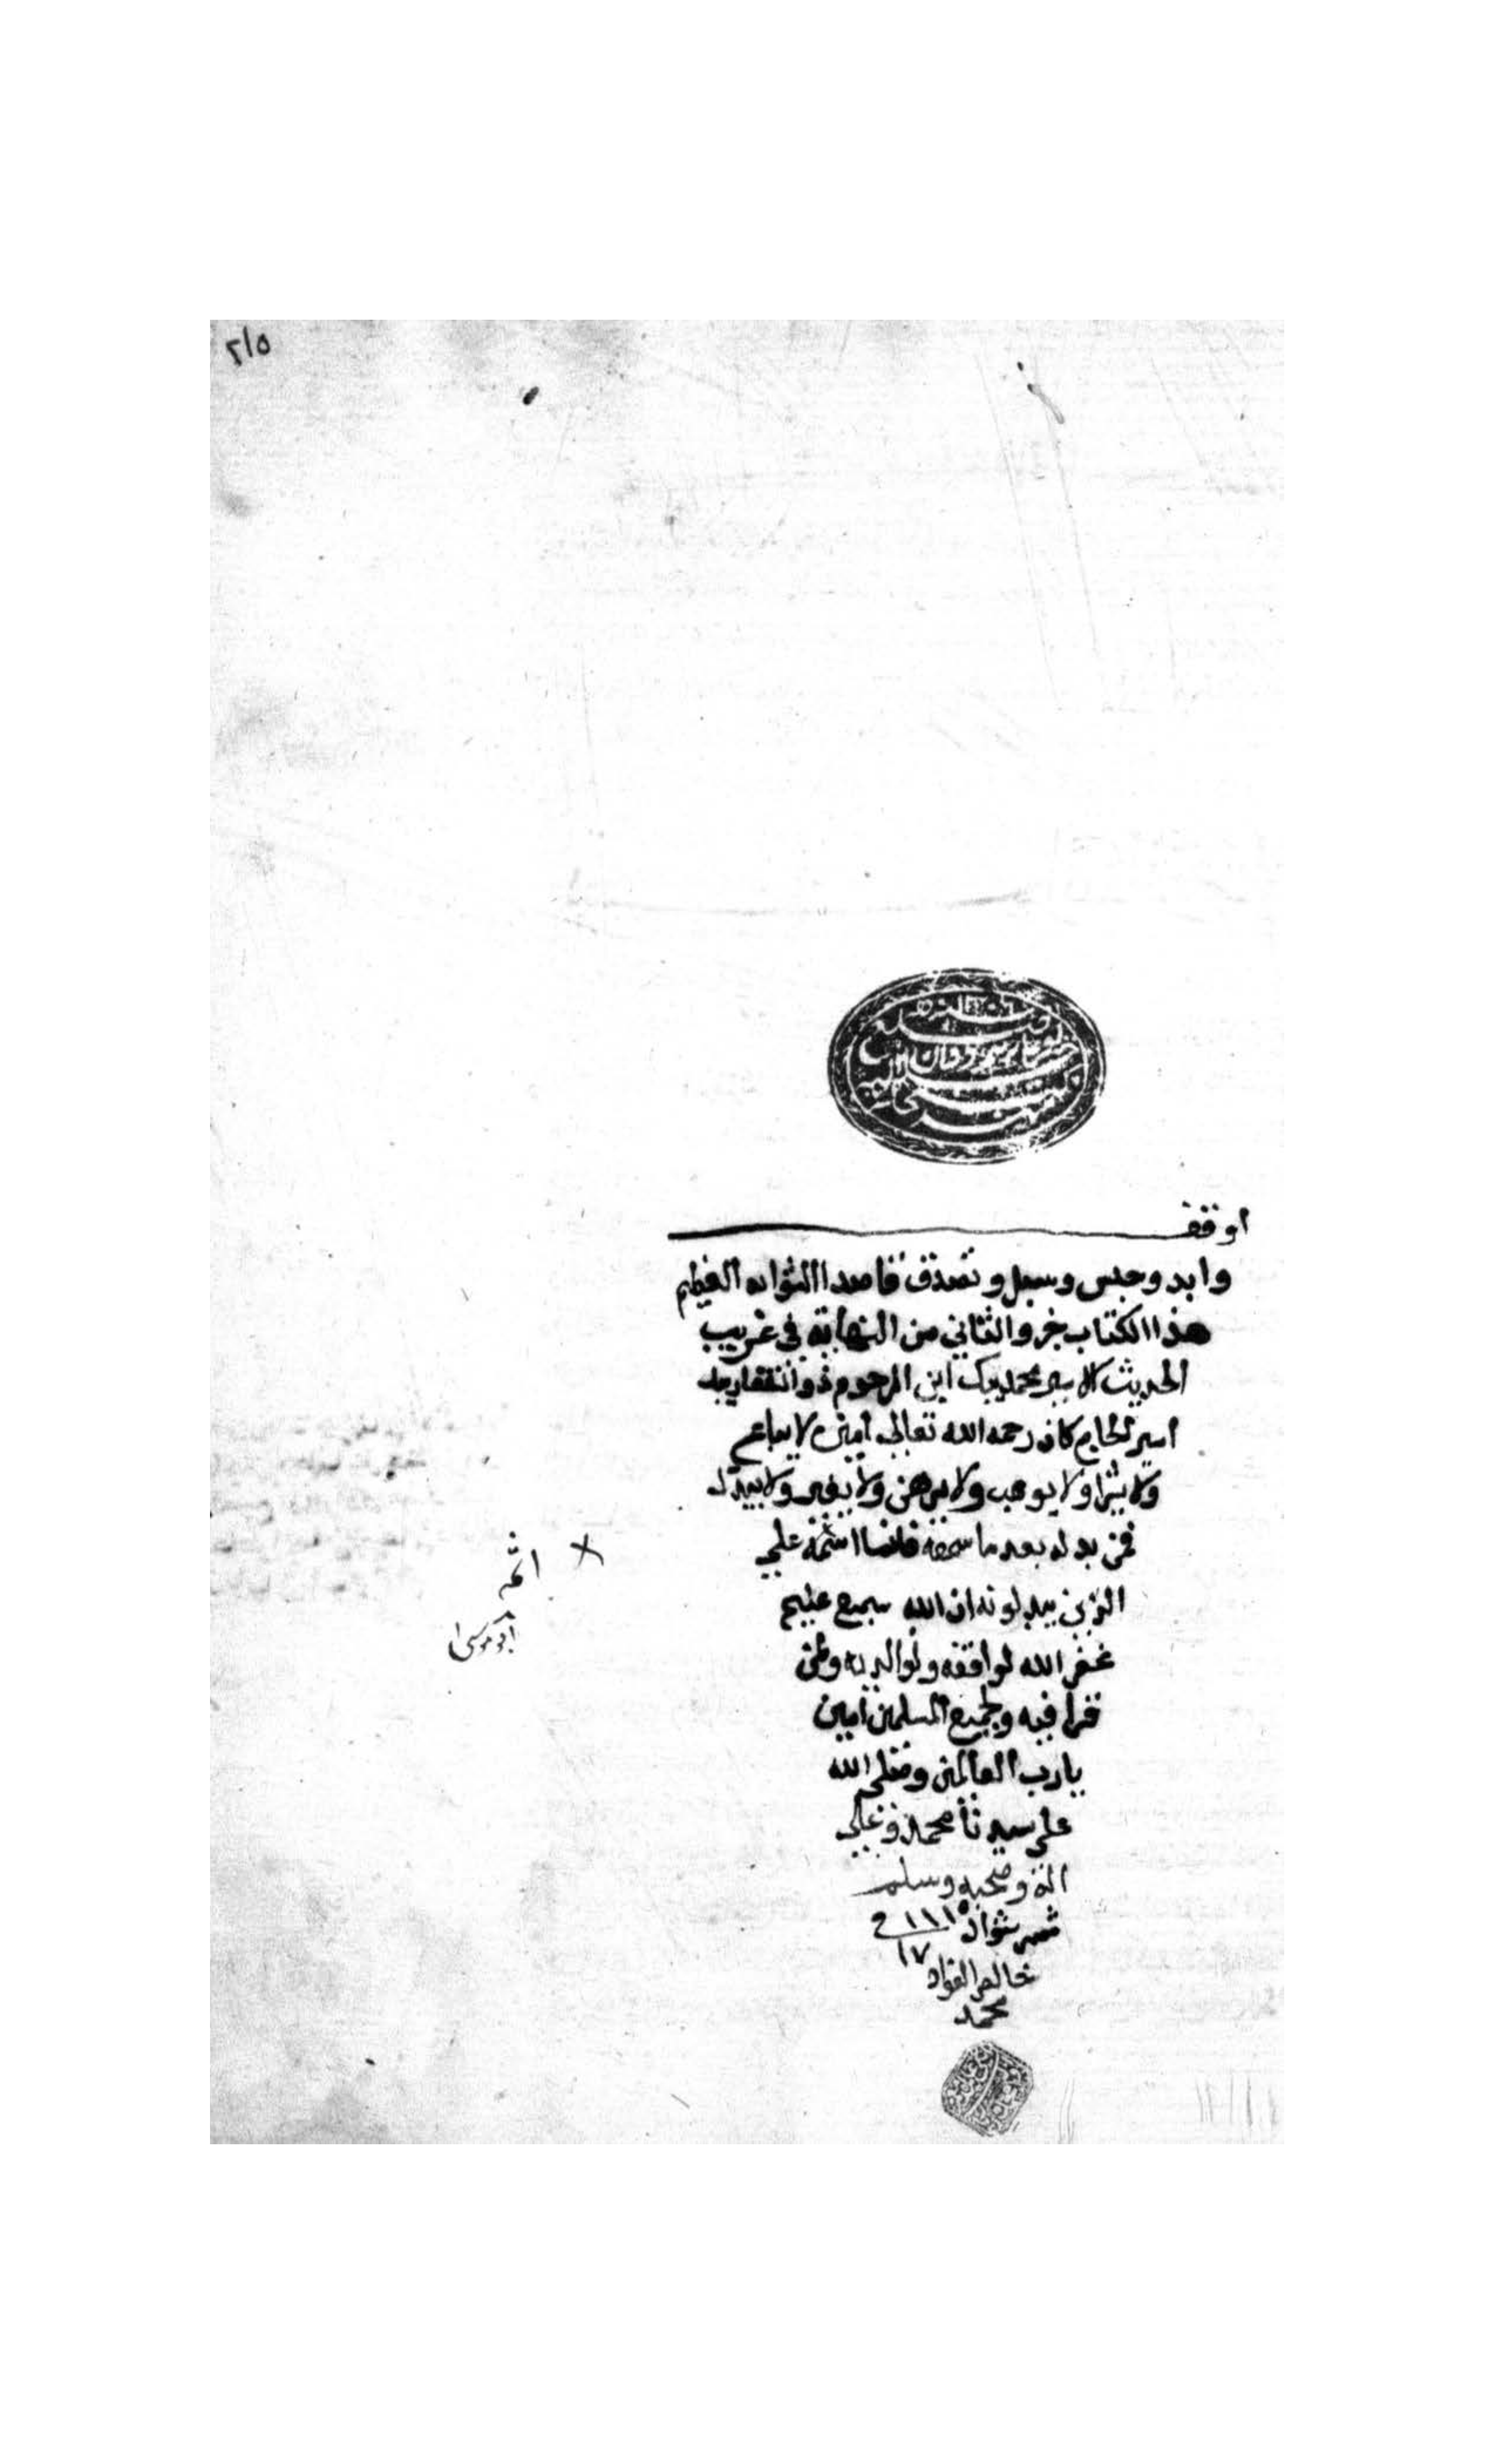 ٢١٥
اوقف
وابد وحبس وسبل وتصدق قاصدا الثواب العظيم
هذا الكتاب جزو الثاني من النهاية في غريب
الحديث الامير محمد بيك ابن المرحوم ذو الفقار بيك
امير الحاج كان رحمه الله تعالى امين لا يباع
ولا يشرا ولا يوهب ولا يرهن ولا يغير ولا يبدل
فمن بدله بعد ما سمعه فانما اثمه على
الذين يبدلونه ان الله سميع عليم
غفر الله لواقفه ولوالديه ولمن
قرا فيه ولجميع المسلمين امين
يا رب العالمين وصلى الله
على سيدنا محمد وعلى
اله وصحبه وسلم
شهر شوال ١١١٥
١٧
محمد
اثمه